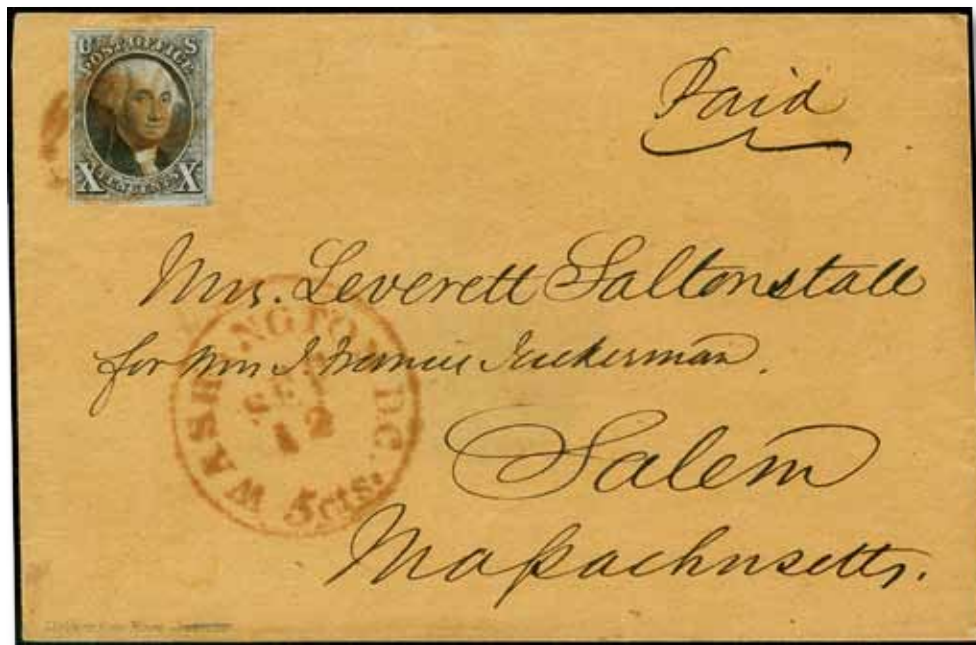 U S
POST OFFICE
X X
Paid
Mrs. Leverett Saltonstall
for Mrs J. Francis Tuckerman.
WASHINGTON D.C.
SEP
12
5cts.
Salem
Massachusetts.